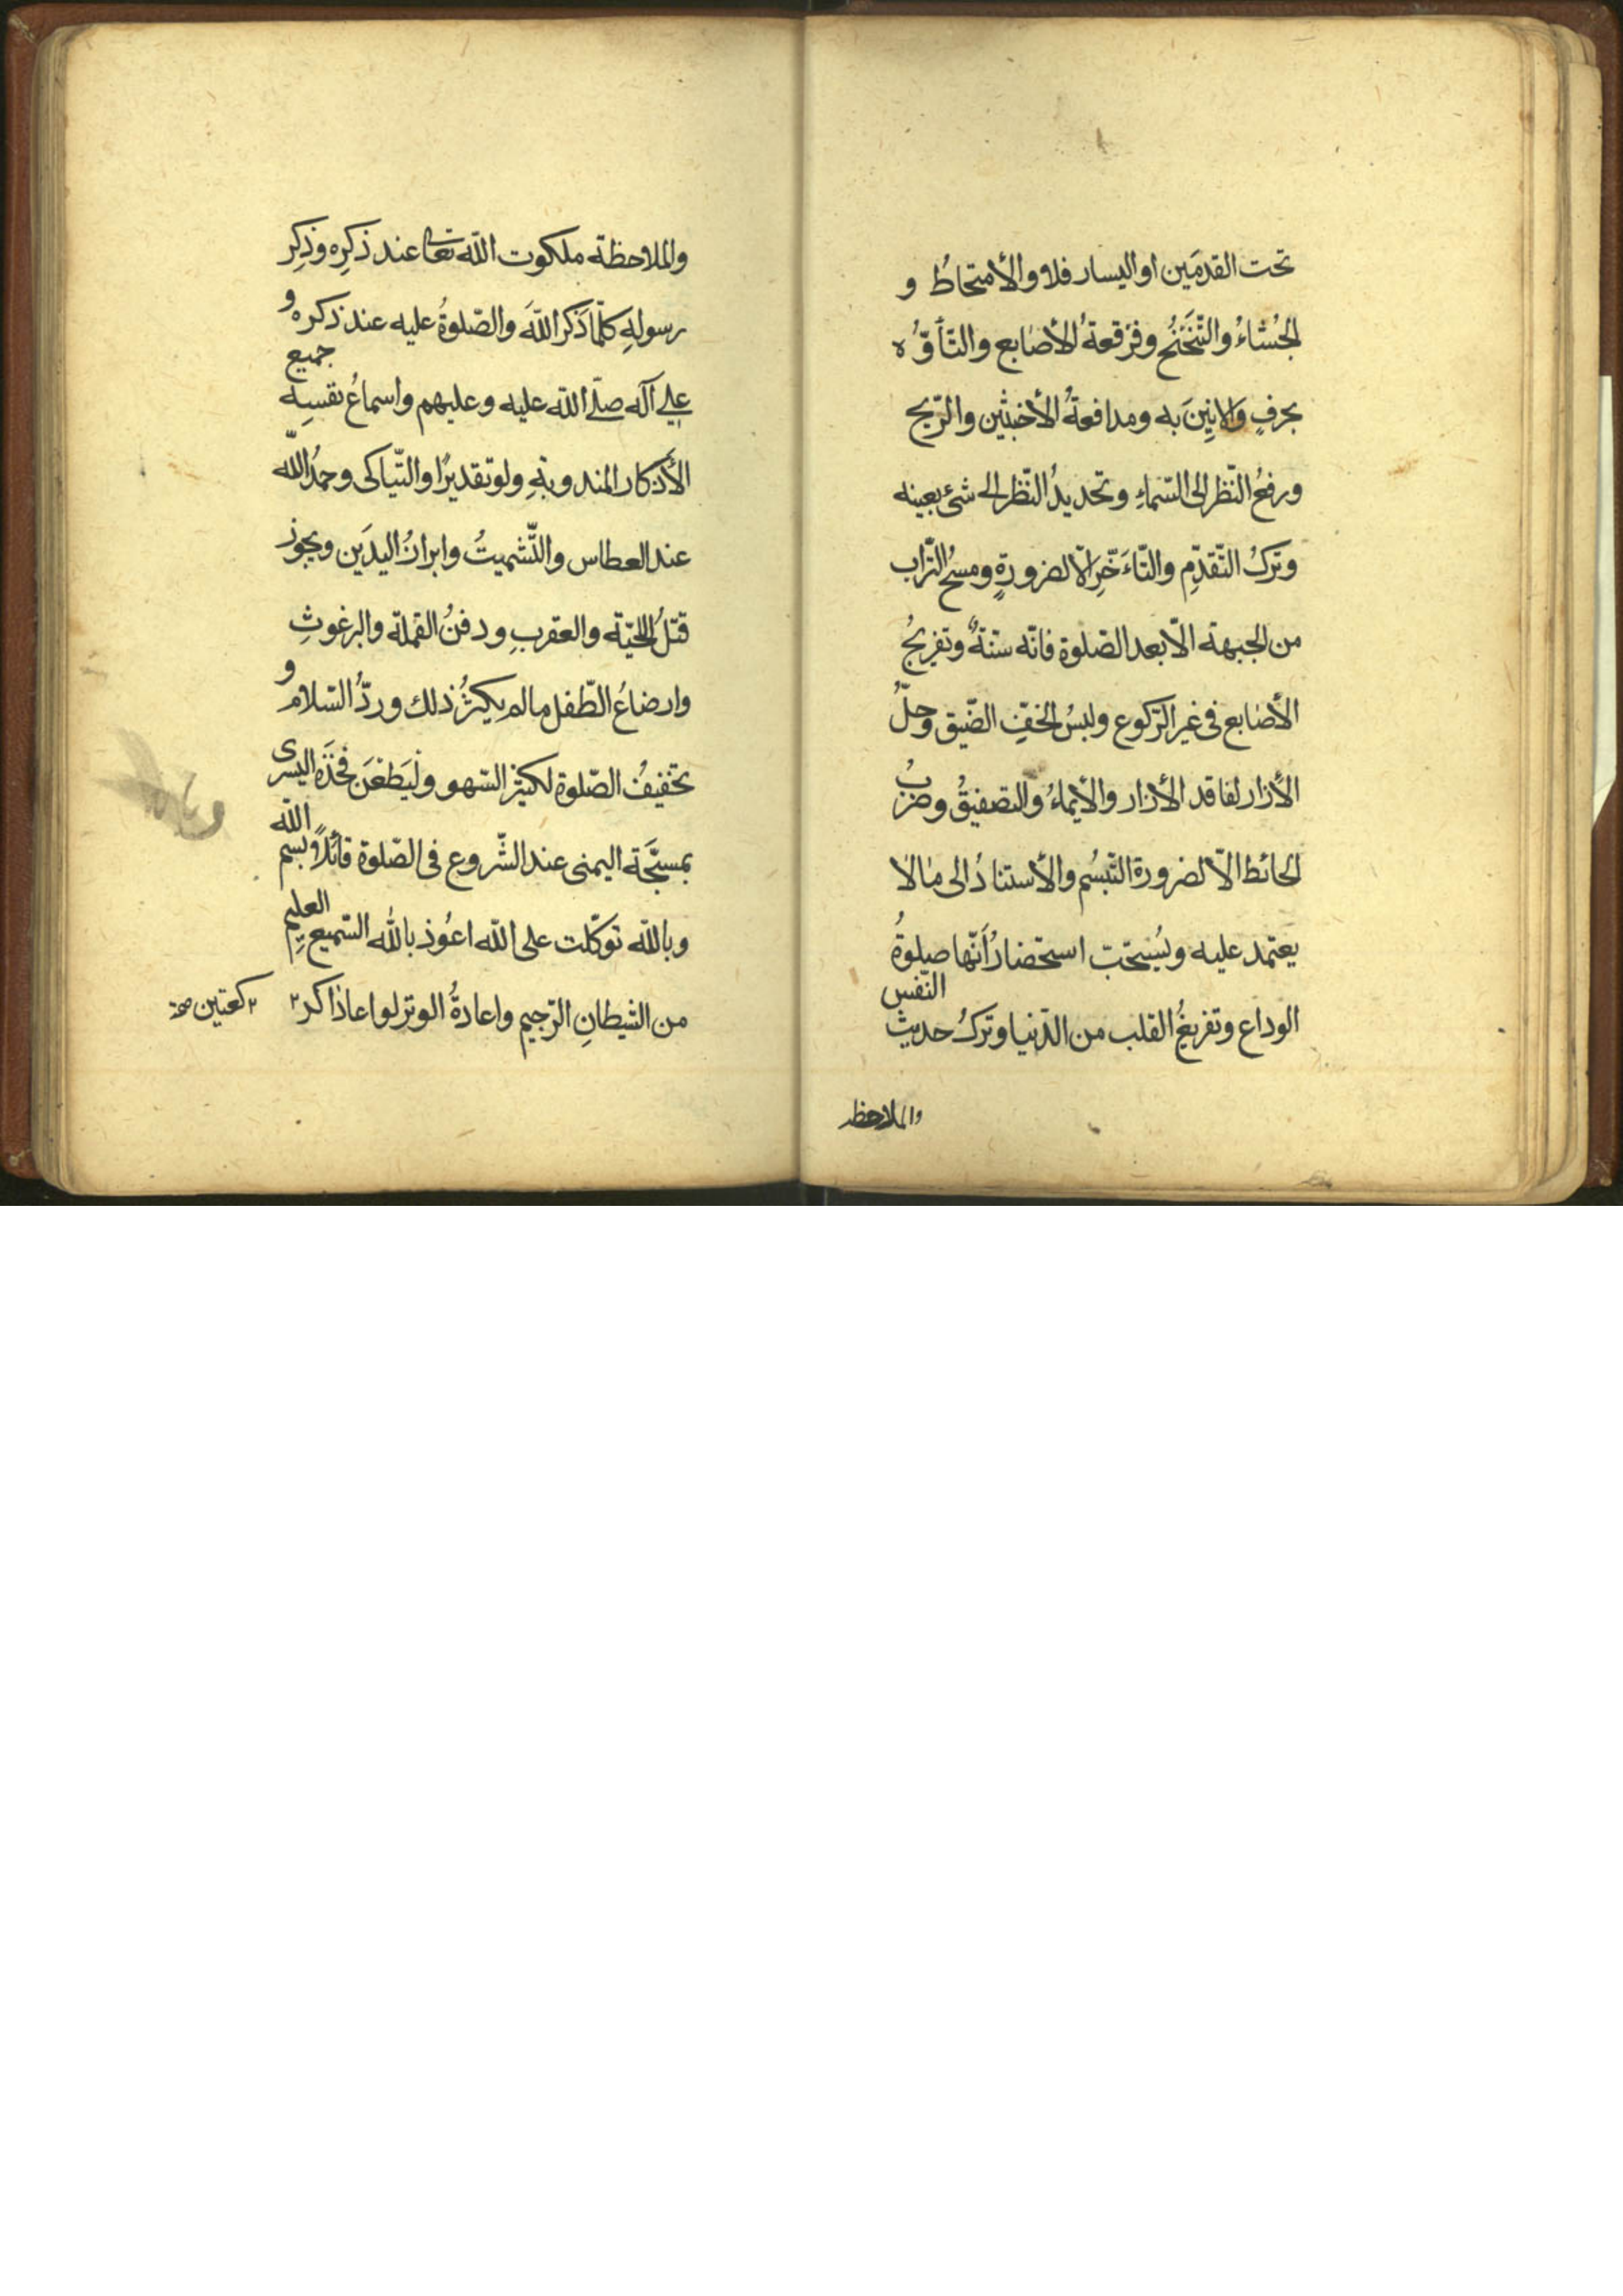 تحت القدمَين او اليسار فلا و الأمتخاطُ و
الجُشاءُ والتّنَخنُح وفَرقعةُ الأصابع والتّأوُّه
بحرفٍ وَالانِينَ به ومدافعةُ الأخبثين والرّيح
ورفعُ النّظر الى السّماءِ وتحديدُ النّظر الى شئ بعينه
وتركُ التّقدّمِ والتّاَءخّرِ الّا لضرورةٍ ومسحُ التّراب
من الجبهة الّا بعد الصّلوة فانّه سنّةٌ وتفريجُ
الأصابع فى غير الرّكوع ولبسُ الخفّ الضّيق وحلُّ
الأزار لفاقد الأزار والأيماءُ والتصفيقُ وضربُ
الحائط الّا لضرورة التّبسُم والأستنادُ الى مالا
يعتمد عليه ويُستحبّ استحضارُ أنّها صلوةُ
الوداع وتفريغُ القلب من الدّنيا وتركُ حديث النّفس
والملاحظه
والملاحظة ملكوت اللّه تعا عند ذكرِه وذِكِر
رسولهِ كلّما ذكر اللّهَ والصّلوةُ عليه عند ذكره و
على آله صلّى اللّه عليه وعليهم واسماعُ نفسِه جميع
الأذكار المندوبةِ ولو تقديرًا والتّباكى وحمدُ اللّه
عند العطاس والتّشميتُ وابرازُ اليدَين ويجوز
قتلُ الحيّة والعقربِ ودفنُ القملة والبرغوثِ
وارضاعُ الطّفل مالم يكثرُ ذلك وردُّ السّلام و
تخفيفُ الصّلوة لكثير السّهو ولْيَطعَن فخذَه اليسرى
بمسبّحَة اليمنى عند الشّروع فى الصّلوة قائلًا بسم اللّه
وباللّه توكّلت على اللّه اعُوذ باللّه السّميع العليم
من الشّيطانِ الرّجيم واعادةُ الوتر لو اعاذاكر ٢
٢ كعتين صح